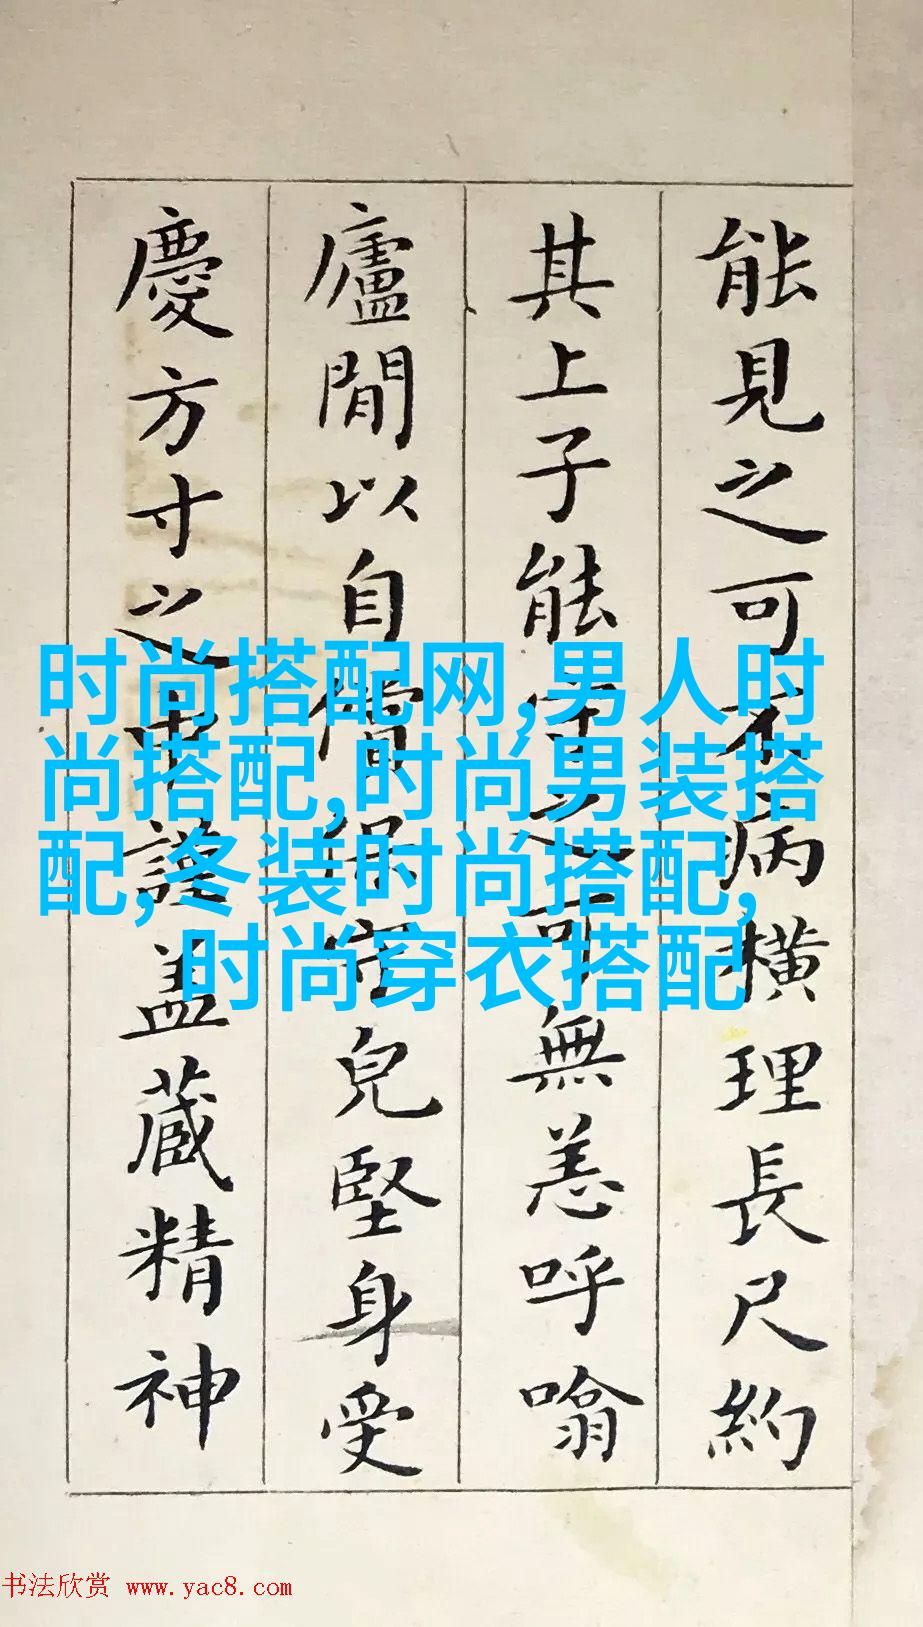 能見之可不病橫理長尺約
其上子能守之可無恙呼噏
廬間以自償保守兒堅身受
慶方寸之中謹蓋藏精神
时尚搭配网,男人时
尚搭配,时尚男装搭
配,冬装时尚搭配,
时尚穿衣搭配
书法欣赏 www.yac8.com